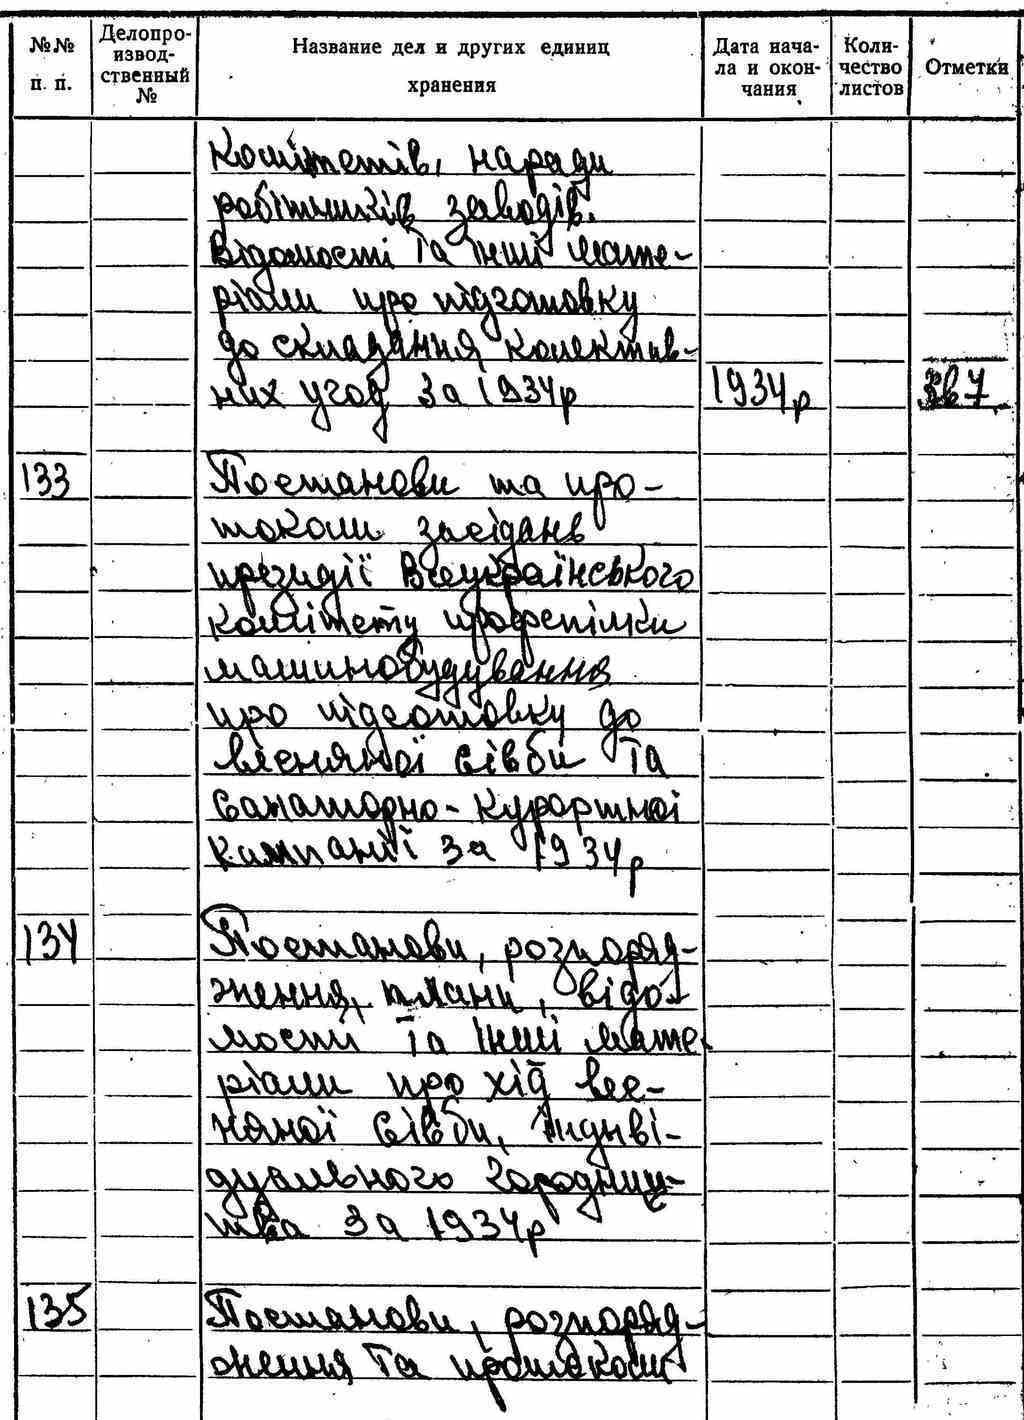 №№ п. п.
Делопро-
извод-
ственный
№
Название дел и других единиц
хранения
Дата нача-
ла и окон-
чания
Коли-
чество
листов
Отметки
Комітетів, наради
робітників заводів.
Відомості та інші мате-
ріали про підготовку
до складання колектив-
них угод за 1934р
1934р
133
Постанови та про-
токоли засідань
президії Всеукраїнського
комітету профспілки
машинобудування
про підготовку до
весняної сівби та
санаторно-курортної
кампанії за 1934р
134
Постанови, розпоряд-
ження, плани, відо-
мості та інші мате-
ріали про хід вес-
няної сівби, індиві-
дуального городниц-
тва за 1934р
135
Постанови, розпоряд-
ження та протоколи